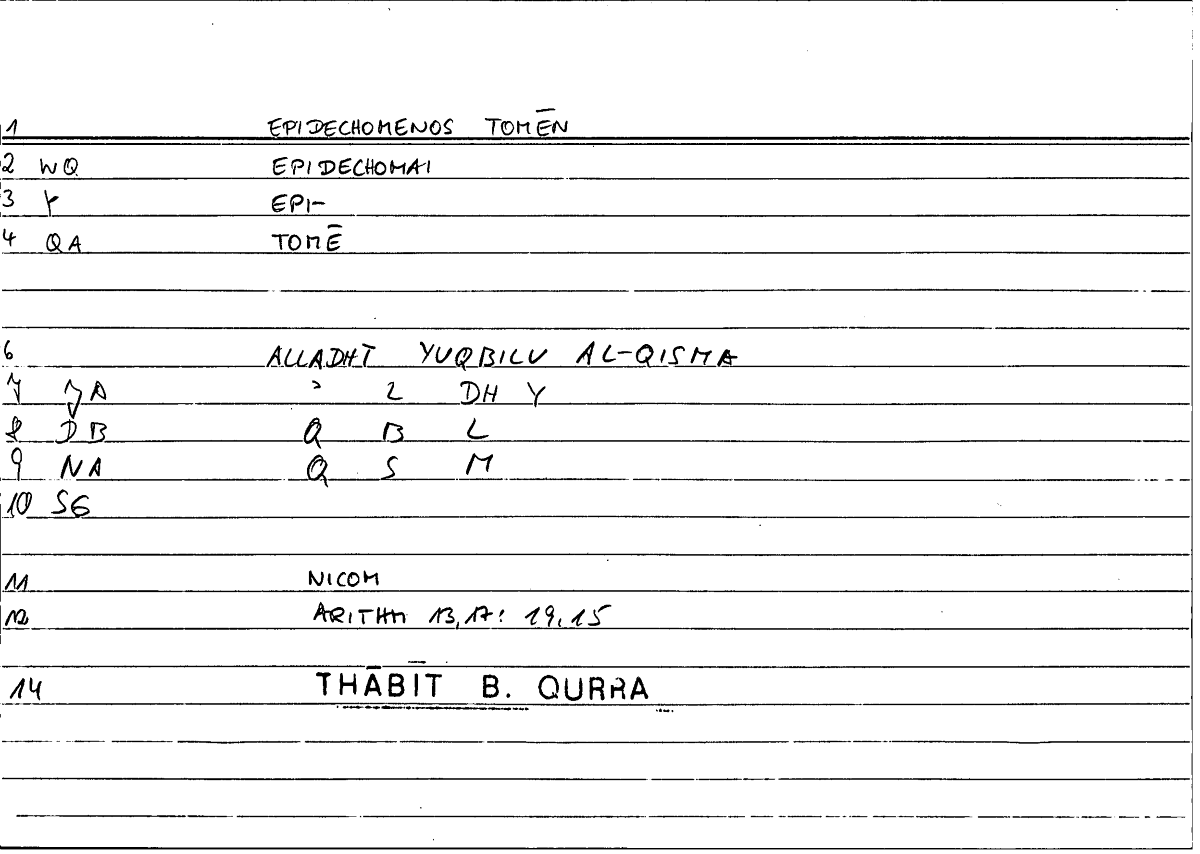 1 EPIDECHOMENOS TOMĒN
2 WQ EPIDECHOMAI
3 Y EPI-
4 QA TOMĒ
6 ALLADHĪ YUQBILU AL-QISMA
7 JA ʾ L DH Y
8 DB Q B L
9 NA Q S M
10 SG
11 NICOM
12 ARITHM 13,17: 19,15
14 THĀBĪT B. QURRA